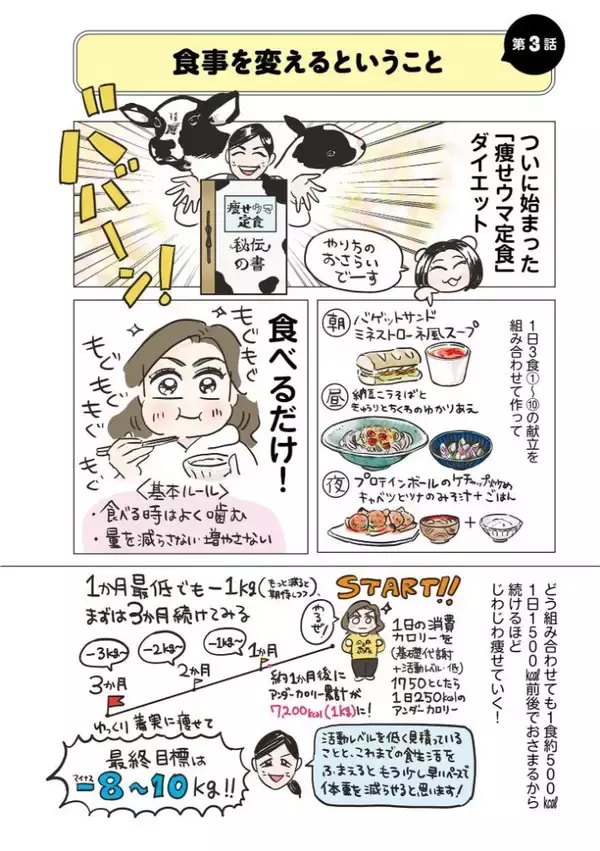 第3話
食事を変えるということ
ついに始まった
「痩せウマ定食」
ダイエット
ババーン!
痩せウマ
定食
秘伝
の書
やりちの
おさらい
でーす
1日3食①〜⑩の献立を
組み合わせて作って
朝
バゲットサンド
ミネストローネ風スープ
昼
納豆こうそばと
きゅうりとちくわのゆかりあえ
夜
プロテインボールのケチャップ炒め
キャベツとツナのみそ汁+ごはん
食べるだけ!
もぐもぐ
もぐもぐ
もぐもぐ
<基本ルール>
・食べる時はよく噛む
・量を減らさない・増やさない
どう組み合わせても1食約500kcal
1日1500kcal前後でおさまるから
続けるほど
じわじわ痩せていく!
1か月最低でも−1kg(もっと減ると期待しつつ)、
まずは3か月続けてみる
START!!
やるぞ!
1日の消費
カロリーを
(基礎代謝
+活動レベル・低)
1750としたら
1日250kcalの
アンダーカロリー
1か月
−1kg〜
2か月
−2kg〜
3か月
−3kg〜
約1か月後に
アンダーカロリー累計が
7,200kcal(1kg)に!
ゆっくり着実に痩せて
最終目標は
マイナス
−8〜10kg!!
活動レベルを低く見積っている
ことと、これまでの食生活を
ふまえると もう少し早いペースで
体重を減らせると思います!